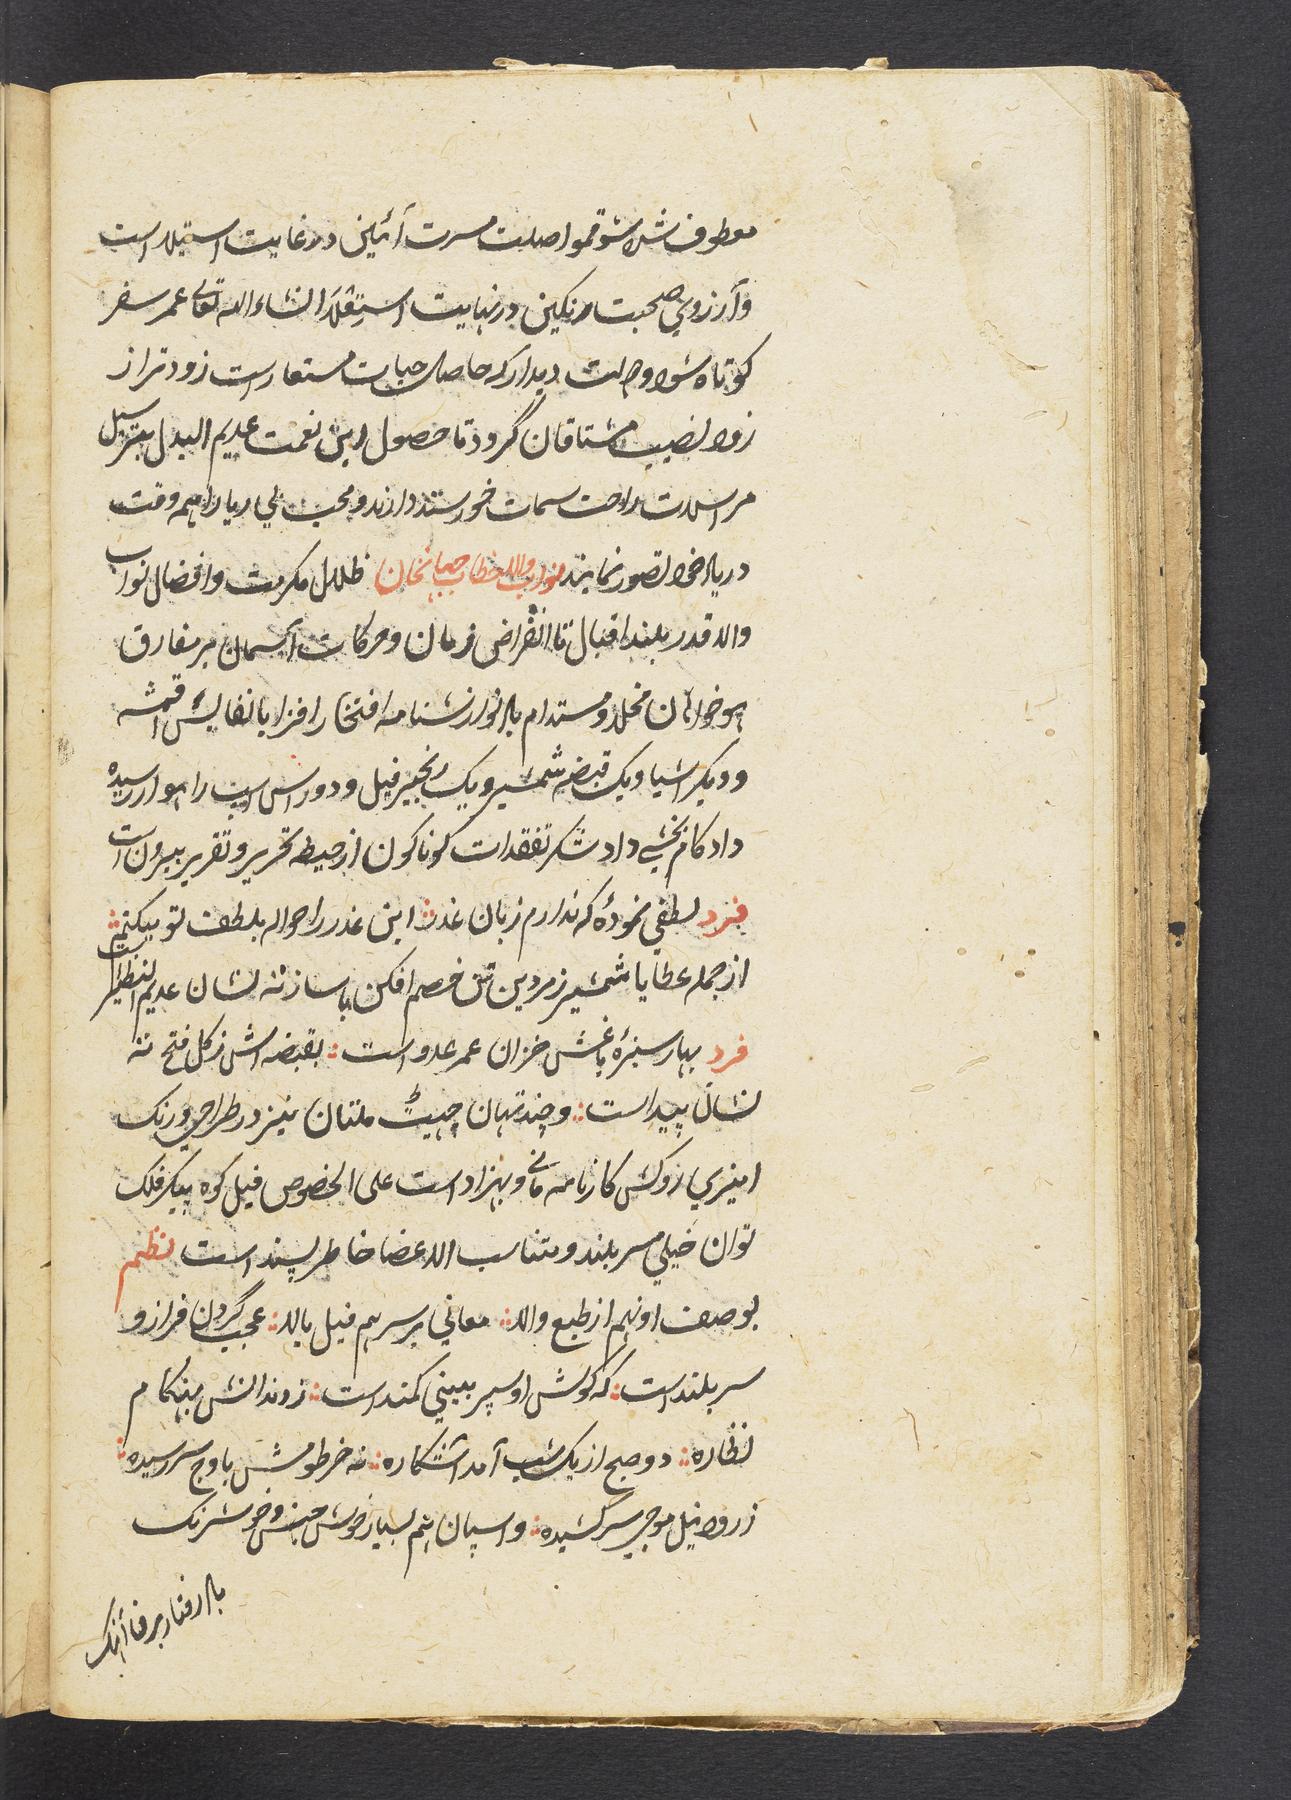 معطوف شد شوق مواصلت مسرت آئین در غایت استیلا است
وآرزوی صحبت رنکین در نهایت استقلا انشاء الله تعالی عمر سفر
کوتاه شود و دولت دیدار که حاصل حیات مستعار است زود تر از
زود نصیب مشتاقان گردد تا حصول این نعمت عدیم البدل بترسیل
مراسلات راحت سمات خورسند دارند و محب بی ریا را همه وقت
دریاد خود تصور نمایند نواب والا خطاب ظلال مکرمت وافضال نواب
والا قدر بلند اقبال تا انقراض زمان وحرکات آسمان بر مفارق
هوا خواهان مخلد ومستدام باد نوازشنامه افتخار افزا با نفایس اقمشه
ودیکر اشیا ویک قبضه شمشیر ویک زنجیر فیل ودوراس اسپ راهوار رسیده
داد کام بخشی داد شکر تفقدات کوناکون از حیطه تحریر وتقریر بیرون است
فرد لطفی نمودهٔ که ندارم زبان عذر این عذر را حواله بلطف تو میکنم
از جمله عطایا شمشیر زمردین تن خصم افکن با ساز نشان عدیم النظیر است
فرد بهار سبزهٔ باغش خزان عمر عدو است بقبضه اش زکل فتح نه
نشان پیدا است وچند تهان چهیت ملتان نیز در طراحی ورنک
امیزی روکش کارنامه مانی وبهزاد است علی الخصوص فیل کوه پیکر فلک
توان خیلی سربلند ومتناسب الاعضا خاطر پسند است نظم
بوصف او نهم از طبع والا معانی بر سر هم فیل بالا عجب گردن فراز و
سر بلند است که کوش او سپر بینی کمند است ز دندانش بهنکام
نظاره دو صبح از یک شب آمد اشکاره نه خرطومش باوج سر رسیده
ز رود نیل موجی سر کشیده واسپان هم بسیار خوش جنس وخوشرنک
باد رفتار برق آهنک